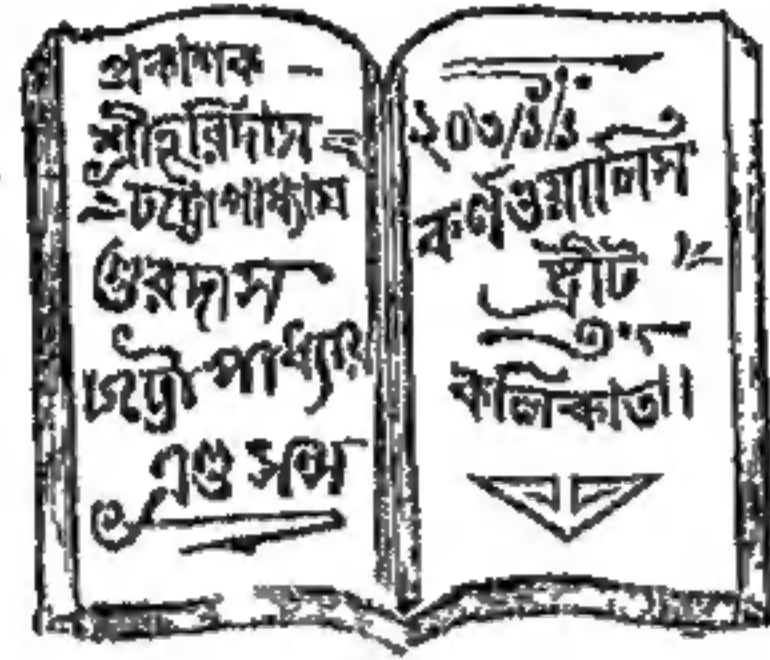 প্রকাশক —
শ্রীহরিদাস
চট্টোপাধ্যায়
গুরদাস
চট্টোপাধ্যায়
এণ্ড সন্স
২০৩/১/১
কর্ণওয়ালিস
ষ্ট্রীট
কলিকাতা।